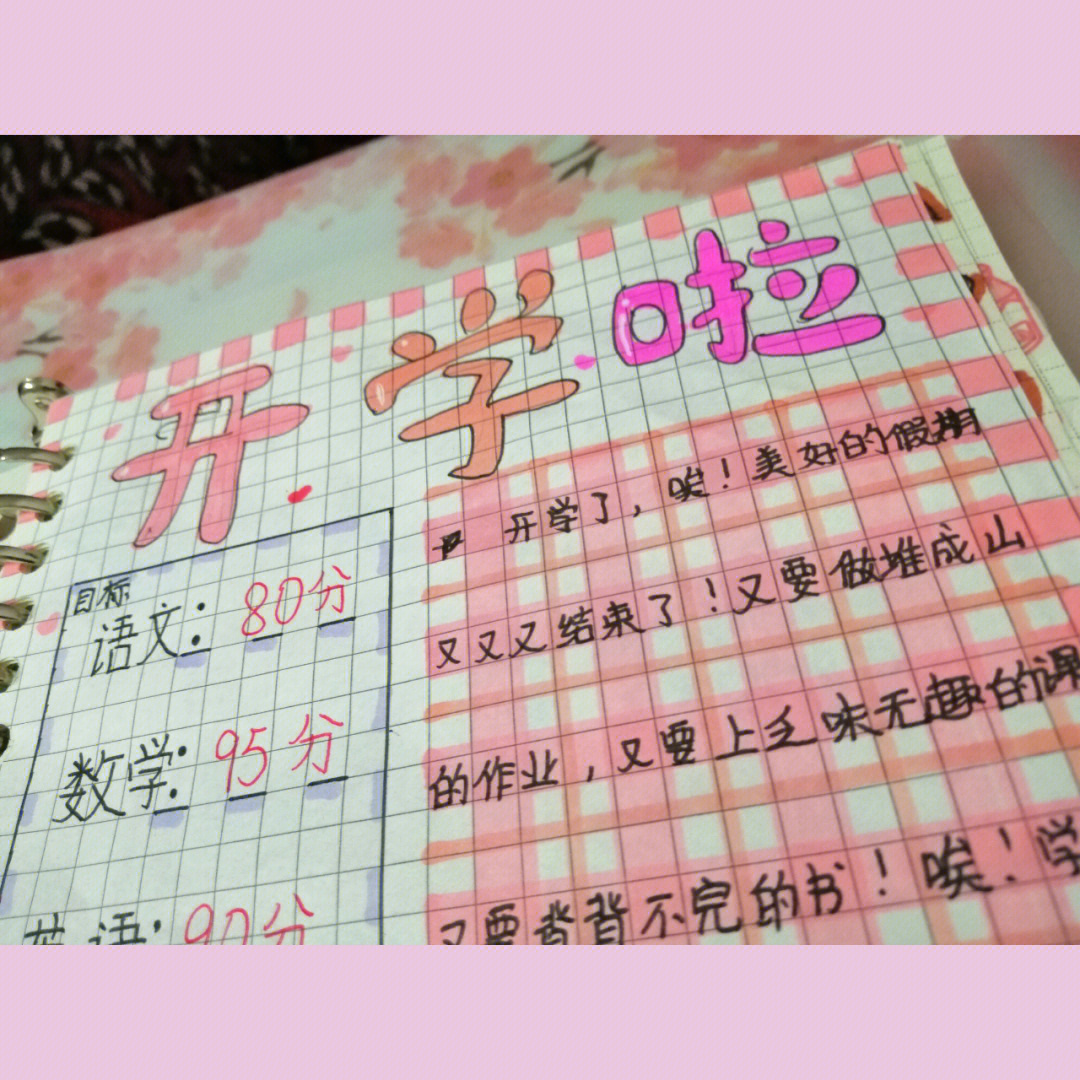 开学啦
目标
语文: 80分
数学: 95分
英语: 90分
开学了,唉!美好的假期
又又又结束了!又要做堆成山
的作业,又要上乏味无趣的课
又要背背不完的书!唉!学